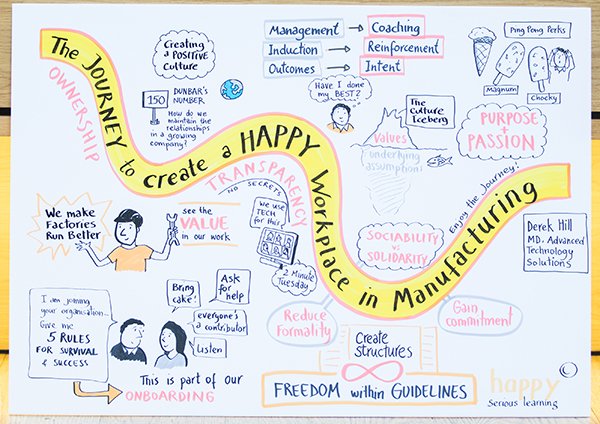 The JOURNEY to create a HAPPY Workplace in Manufacturing
OWNERSHIP
Creating
a POSITIVE
Culture
150
DUNBAR'S
NUMBER
How do we
maintain the
relationships
in a growing
company?
Management → Coaching
Induction → Reinforcement
Outcomes → Intent
PING PONG PERKS
Magnum
Chocky
Have I done
my BEST?
The
Culture
Iceberg
Values
underlying
assumption
PURPOSE
+
PASSION
TRANSPARENCY
NO SECRETS
We use
TECH
for this
2 Minute
Tuesday
We make
Factories
Run Better
see the
VALUE
in our work
SOCIABILITY
v
SOLIDARITY
Enjoy the Journey!
Derek Hill
MD. Advanced
Technology
Solutions
I am joining
your organisation...
Give me
5 RULES
FOR SURVIVAL
& SUCCESS
Bring
cake!
Ask for
help
everyone's
a contributor
Listen
This is part of our
ONBOARDING
Reduce
Formality
Gain
commitment
Create
Structures
FREEDOM within GUIDELINES
happy
Serious learning